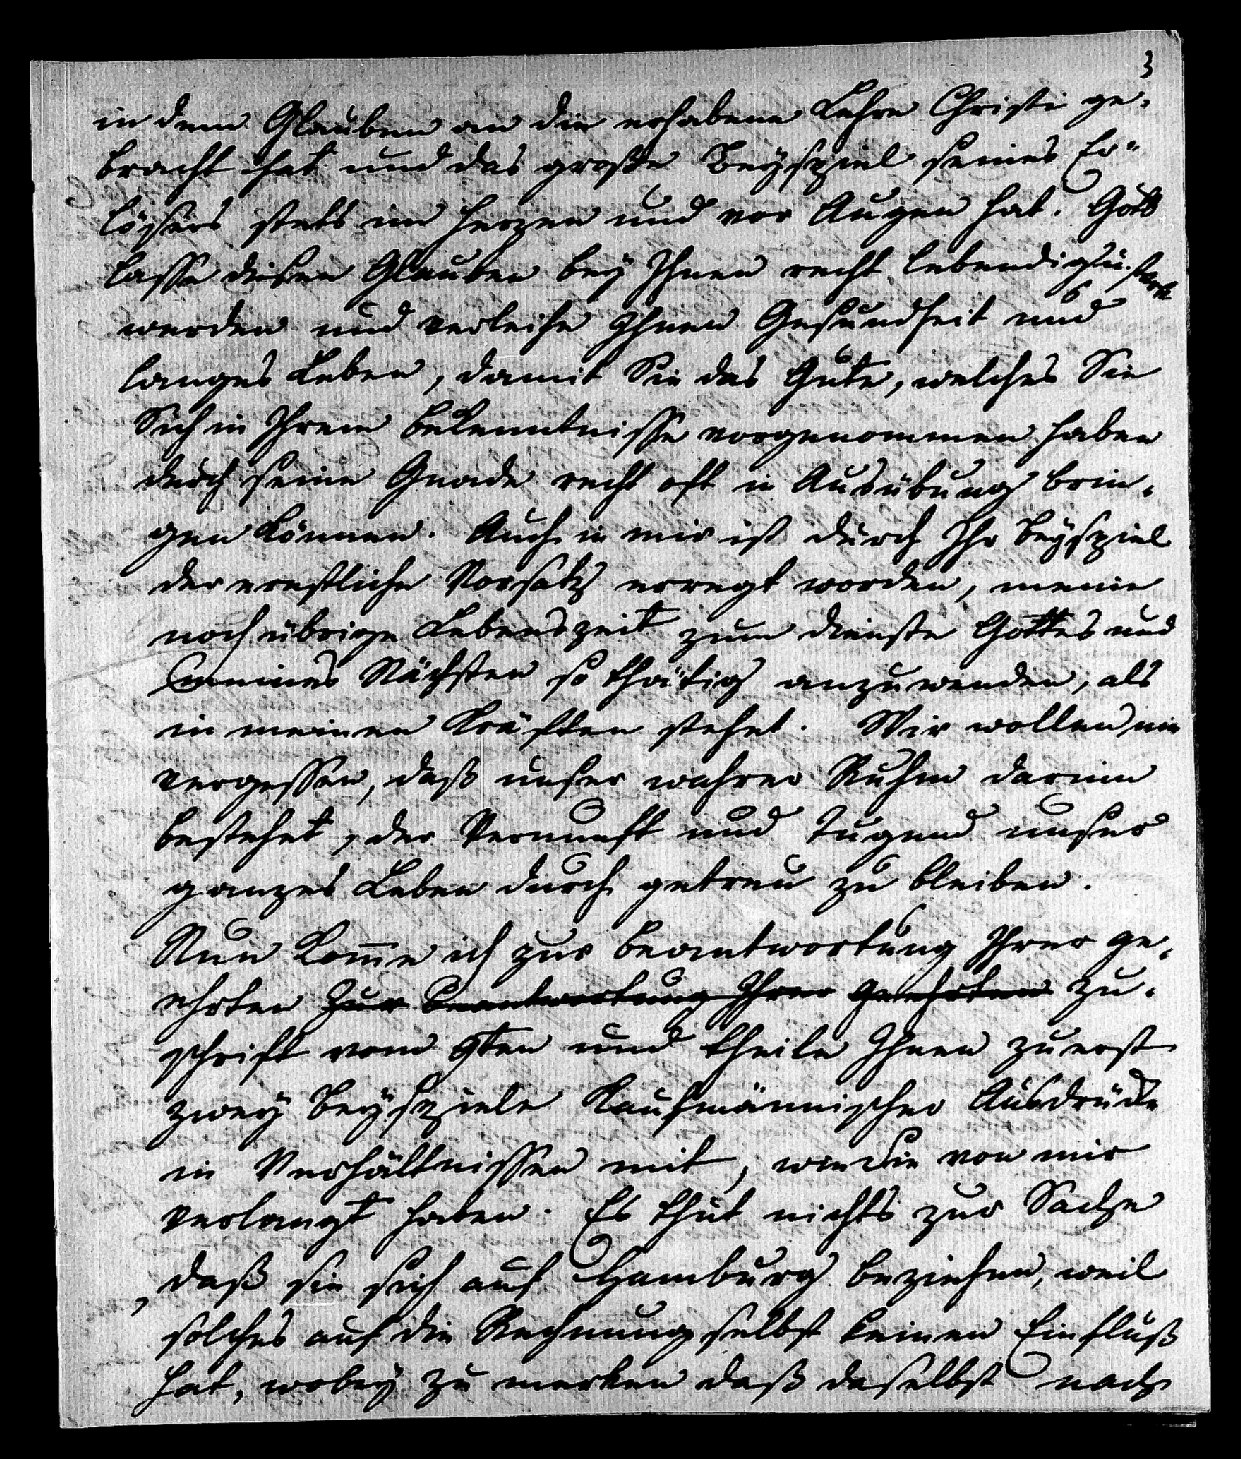 3
in dem Glauben an die erhabene Lehre Christi ge-
bracht hat und das große Beyspiel seines Er-
lösers stets im Herzen und vor Augen hat. Gott
lasse diesen Glauben bey Ihnen recht lebendig u. stark
werden und verleihe Ihnen Gesundheit und
langes Leben, damit Sie das Gute, welches Sie
Sich in Ihrem Bekenntnisse vorgenommen haben
durch seine Gnade recht oft in Ausübung brin-
gen können. Auch in mir ist durch Ihr Beyspiel
der ernstliche Vorsatz erregt worden, meine
noch übrige Lebenszeit zum Dienste Gottes und
meines Nächsten so thätig anzuwenden, als
in meinen Kräften stehet. Wir wollen nie
vergessen, daß unser wahrer Ruhm darinn
bestehet, der Vernunft und Tugend unser
ganzes Leben durch getreu zu bleiben.
Nun kom̄e ich zur Beantwortung Ihrer ge-
ehrten zur Beantwortung Ihrer geehrten Zu-
schrift vom 9ten und theile Ihnen zuerst
zwey Beyspiele kaufmännischer Ausdrücke
in Verhältnissen mit, wie Sie von mir
verlangt haben. Es thut nichts zur Sache
, daß sie sich auf Hamburg beziehen, weil
solches auf die Rechnung selbst keinen Einfluß
hat, wobey zu merken daß daselbst nach